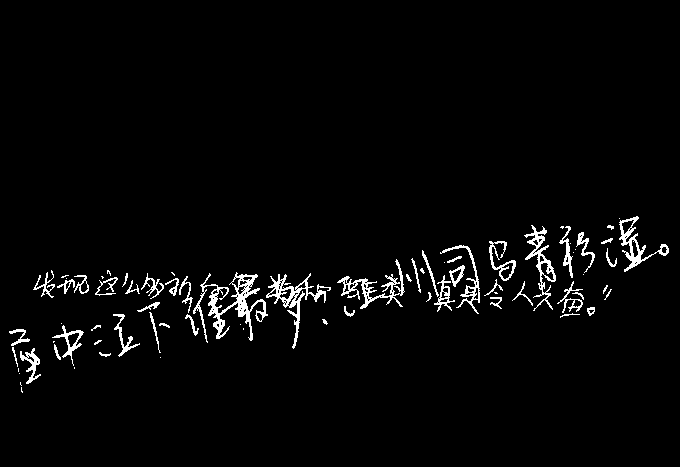 发现这么多新类和类，真是令人兴奋。”
座中泣下谁最多，江州司马青衫湿。